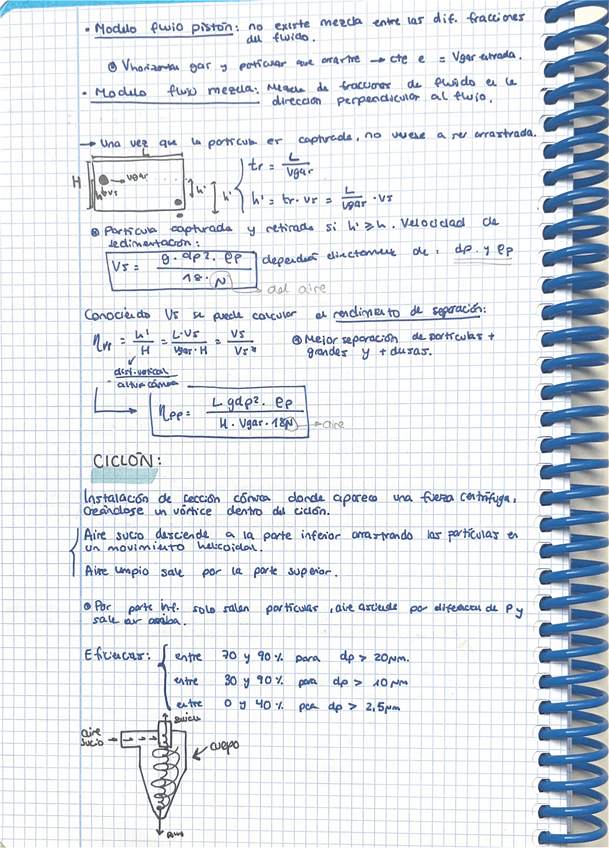 • Modelo flujo pistón: no existe mezcla entre las dif. fracciones
del fluido.
Vhorizontal gas y partículas que arrastre → cte e = Vgas entrada.
• Modelo flujo mezcla: Mezcla de fracciones de fluido en la
dirección perpendicular al flujo.
→ Una vez que la partícula es capturada, no vuelve a ser arrastrada.
L
H h vgas vs h' h'
tr = L / vgas
h' = tr · vs = L / vgas · vs
Partícula capturada y retirada si h' ≥ h. Velocidad de
sedimentación:
Vs = g · dp² · ρp / 18 · μ dependerá directamente de: dp y ρp
del aire
Conociendo Vs se puede calcular el rendimiento de separación:
ηpp = h' / H = L·Vs / Vgas·H = Vs / Vs*
Mejor separación de partículas +
grandes y + densas.
dist. vertical
altura cámara
ηpp = L g dp² · ρp / H · Vgas · 18μ → aire
CICLÓN:
Instalación de sección cónica donde aparece una fuerza centrífuga,
creándose un vórtice dentro del ciclón.
Aire sucio desciende a la parte inferior arrastrando las partículas en
un movimiento helicoidal.
Aire limpio sale por la parte superior.
Por parte inf. solo salen partículas, aire asciende por diferencial de P y
sale por arriba.
Eficiencias: entre 70 y 90% para dp > 20μm.
entre 30 y 90% para dp > 10μm
entre 0 y 40% para dp > 2,5μm
aire
sucio
cuerpo